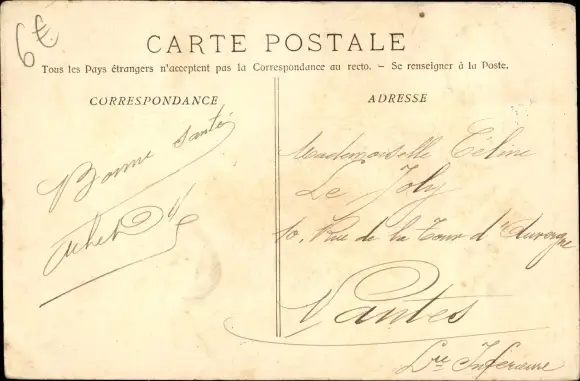 6€
CARTE POSTALE
Tous les Pays étrangers n'acceptent pas la Correspondance au recto. - Se renseigner à la Poste.
CORRESPONDANCE
ADRESSE
Bonne santé
Mademoiselle Céline
Le Joly
10, Rue de la Tour d'Auvergne
Nantes
Lre Inférieure